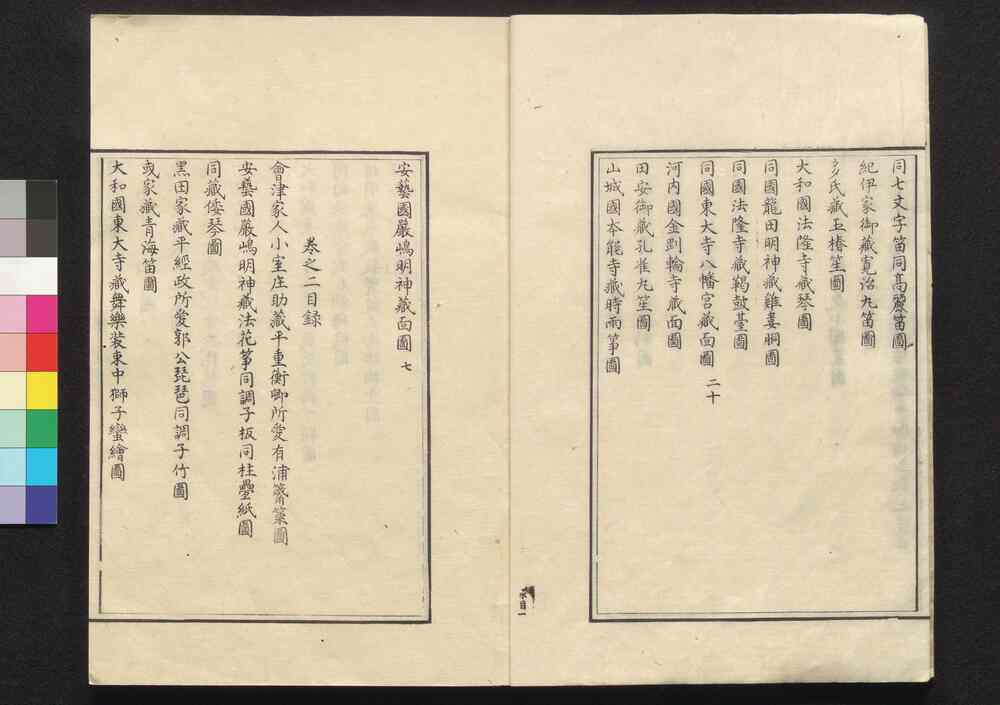 同七文字笛同高麗笛圖
紀伊家御藏寛治丸笛圖
多氏藏玉椿笙圖
大和國法隆寺藏琴圖
同國龍田明神藏雞婁胴圖
同國法隆寺藏鞨鼓臺圖
同國東大寺八幡宮藏面圖 二十
河内國金剛輪寺藏面圖
田安御藏孔雀丸笙圖
山城國本能寺藏時雨箏圖
安藝國嚴嶋明神藏面圖 七
卷之二目録
會津家人小室庄助藏平重衡卿所愛有浦篳篥圖
安藝國嚴嶋明神藏法花箏同調子板同柱疊紙圖
同藏倭琴圖
黑田家藏平經政所愛郭公琵琶同調子竹圖
或家藏青海笛圖
大和國東大寺藏舞樂裝束中獅子蠻繪圖